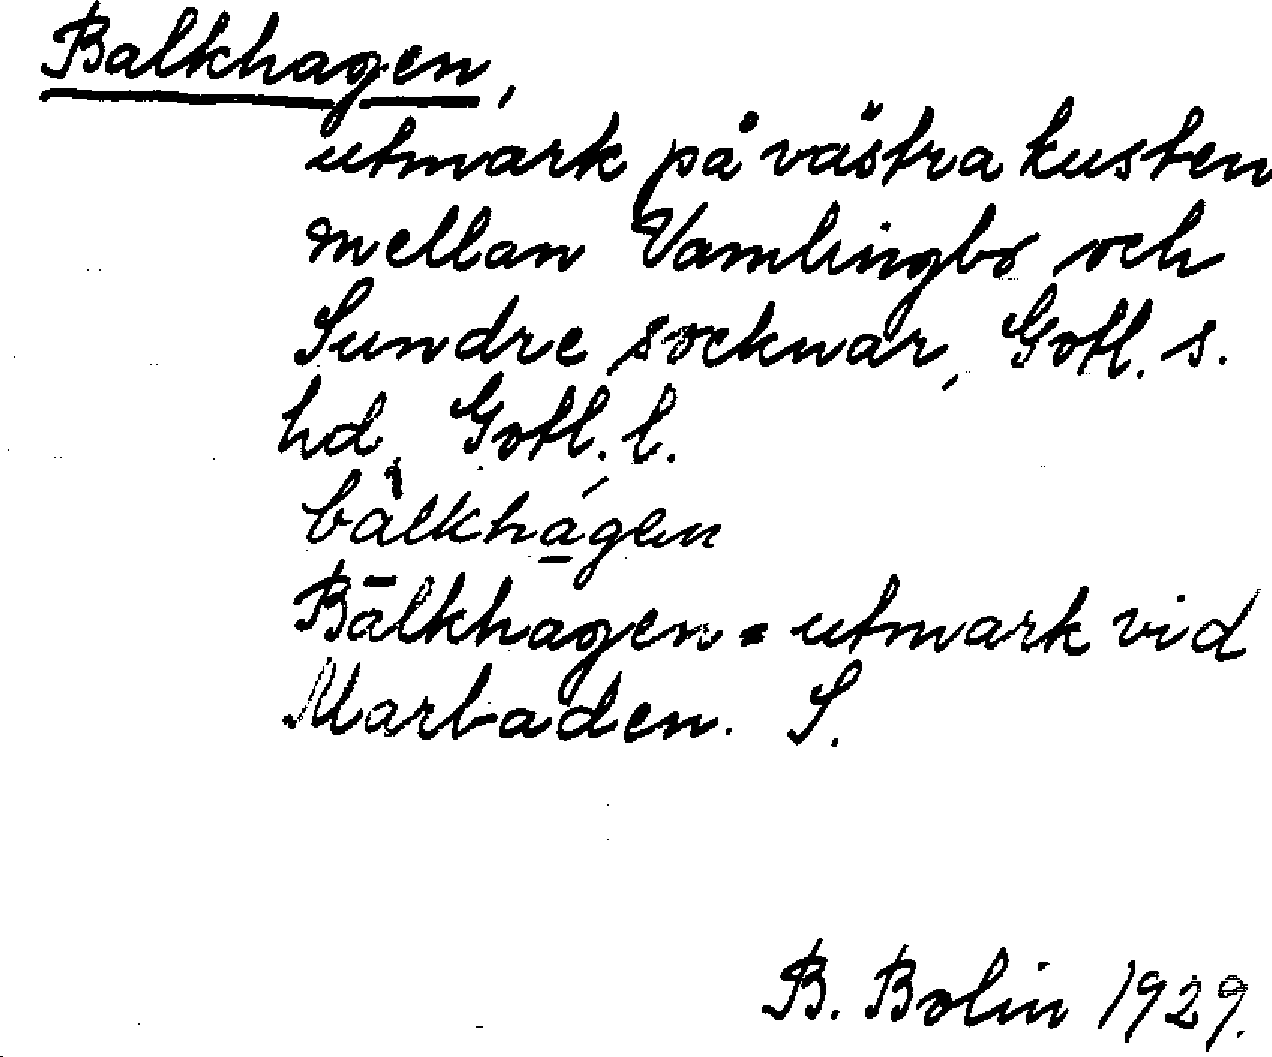 Balkhagen,
utmark på västra kusten
mellan Vamlingbo och
Sundre socknar, Gotl. s.
hd, Gotl. l.
bàlkhá̲gen
Bālkhagen = utmark vid
Marbaden. S.
B. Bolin 1929.